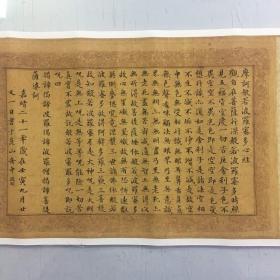 摩訶般若波羅蜜多心經
觀自在菩薩行深般若波羅蜜多時照
見五蘊皆空度一切苦厄舍利子色不
異空空不異色色即是空空即是色受
想行識亦復如是舍利子是諸法空相
不生不滅不垢不淨不增不減是故空
中無色無受想行識無眼耳鼻舌身意
無色聲香味觸法無眼界乃至無意識
界無無明亦無無明盡乃至無老死亦
無老死盡無苦集滅道無智亦無得以
無所得故菩提薩埵依般若波羅蜜多
故心無罣礙無罣礙故無有恐怖遠離
顛倒夢想究竟涅槃三世諸佛依般若
波羅蜜多故得阿耨多羅三藐三菩提
故知般若波羅蜜多是大神咒是大明
咒是無上咒是無等等咒能除一切苦
真實不虛故說般若波羅蜜多咒即說
咒曰
揭諦揭諦波羅揭諦波羅僧揭諦菩提
薩婆訶
嘉靖二十一年歲在壬寅九月廿
又一日書于崑山舟中